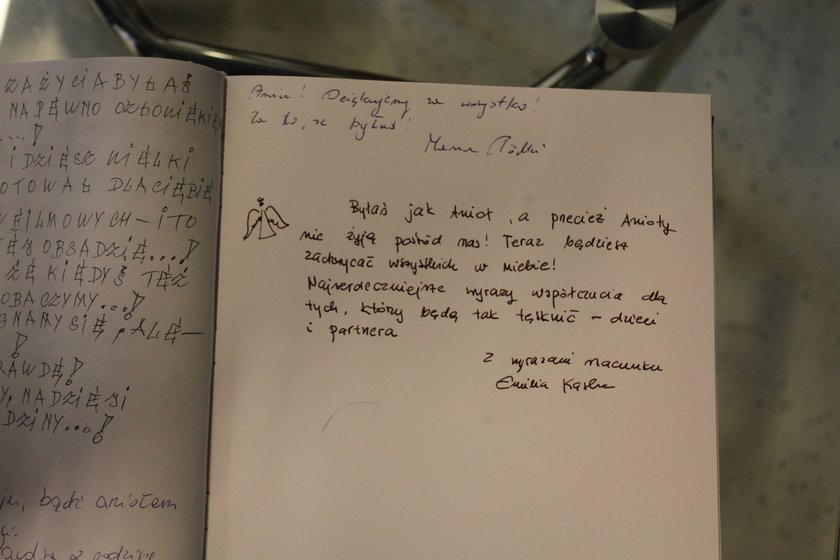 ZA ŻYCIA BYŁAŚ
NAPEWNO CZŁOWIEKIEM
....!
IDZIESZ WIELKI
OTOWAŁ DLA CIĘBIE
FILMOWYCH — I TO
OBSADZIE....!
ŻE KIEDYŚ TEŻ
OBACZYMY...!
GNAMY SIĘ, ALE —
!
RAWDĘ!
NADZIEJI
DZINY...!
bądź aniołem
z rodziną
Aniu! Dziękujemy za wszystko!
Za to, że byłaś!
Byłaś jak Anioł, a przecież Anioły
nie żyją pośród nas! Teraz będziesz
zachwycać wszystkich w niebie!
Najserdeczniejsze wyrazy współczucia dla
tych, którzy będą tak tęsknić – dzieci
i partnera
Z wyrazami szacunku
Emilia